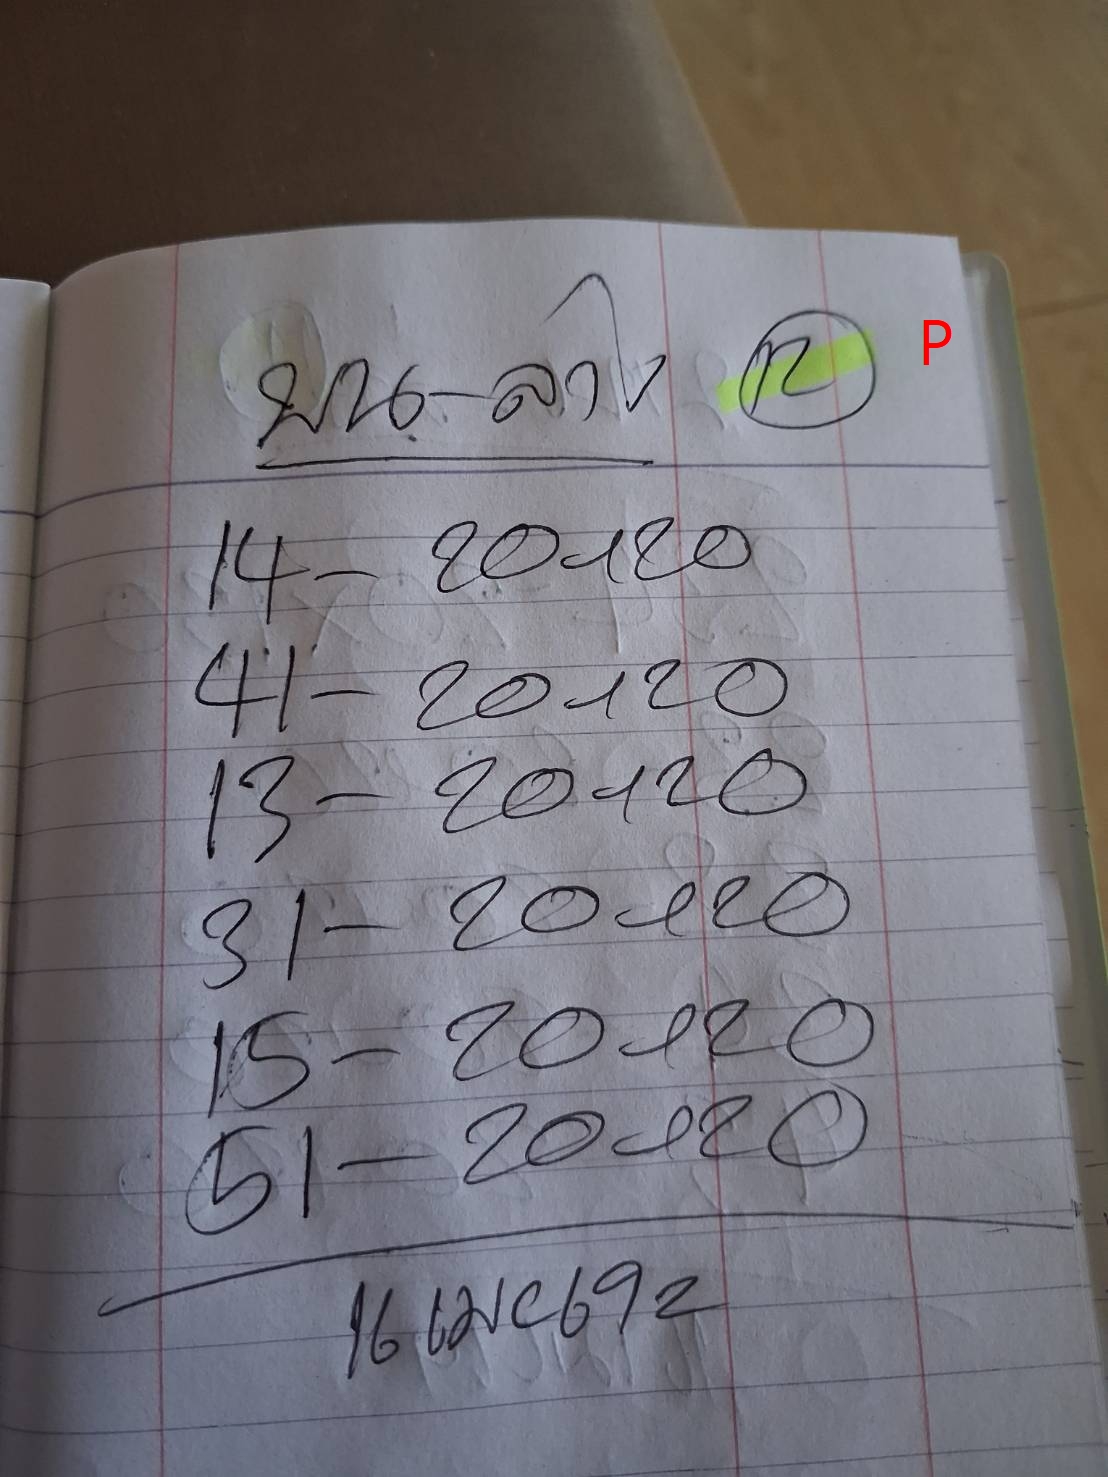 บน-ล่าง ท P
14- 20×20
41- 20×20
13- 20×20
31- 20×20
15- 20×20
51- 20×20
16 เมษ 69